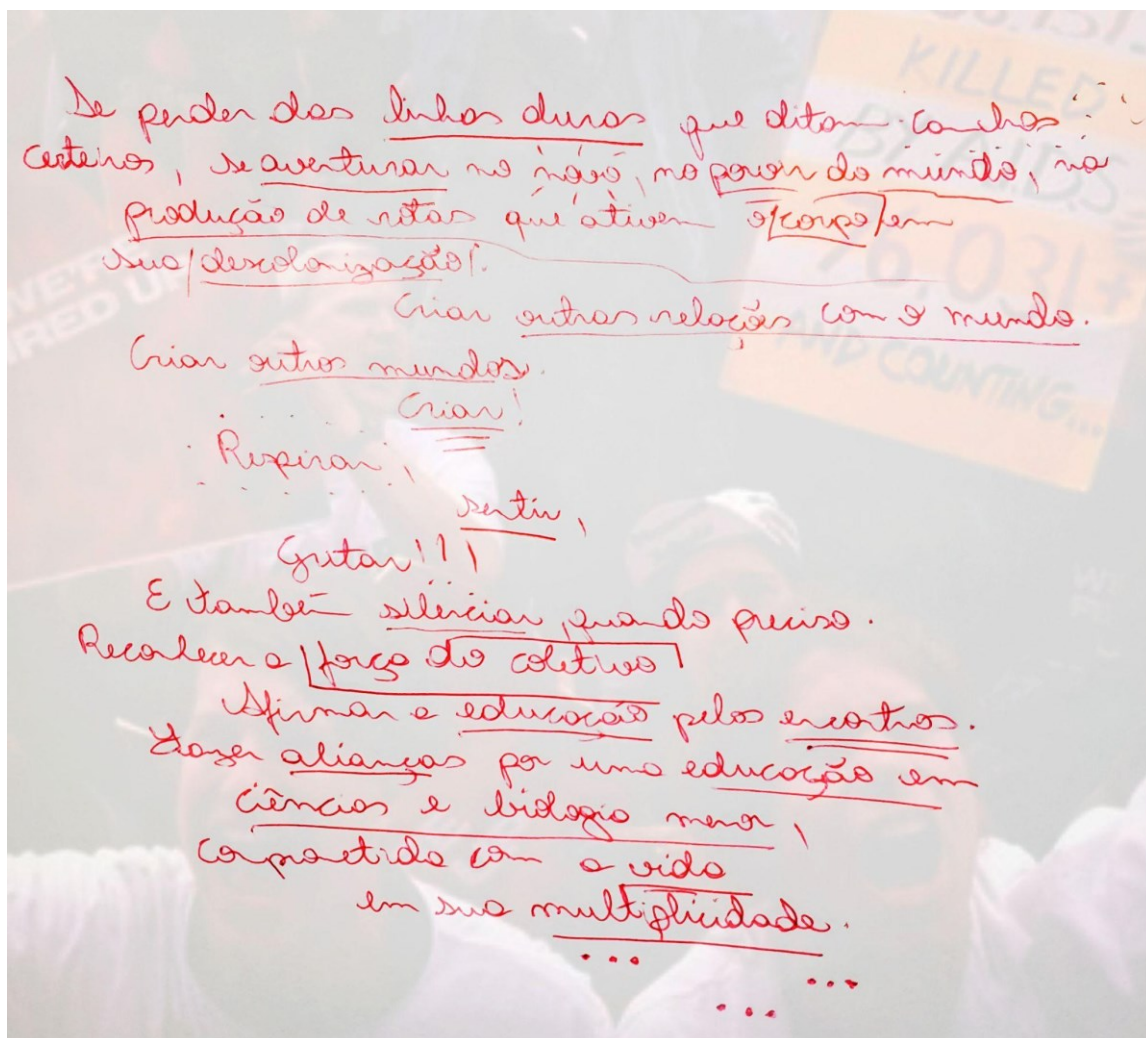 Se perder das linhas duras que ditam caminhos
certeiros, se aventurar no novo, no povoar do mundo, na
produção de rotas que ativem o corpo em
sua descolonização.
Criar outras relações com o mundo.
Criar outros mundos.
Criar!
Respirar,
sentir,
Gritar!!!
E também silenciar, quando preciso.
Reconhecer a força do coletivo
Afirmar a educação pelos encontros.
Fazer alianças por uma educação em
ciências e biologia menor,
compactuada com a vida
em sua multiplicidade.
... ...
...
KILLED
BY AIDS
76,031+
AND COUNTING...